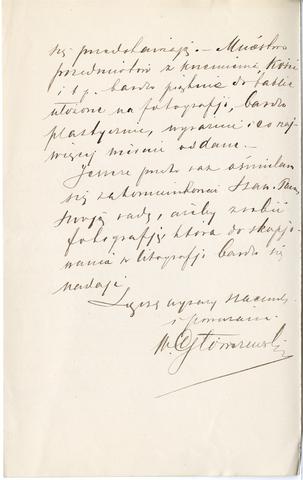 się przedstawiają. – Mnóstwo
przedmiotów z krzemienia, kości
i t. p. bardzo pięknie do tablic
ułożone na fotografji, bardzo
plastycznie, wyraźnie i co naj-
więcej wiernie oddane. –
Jeszcze przeto raz ośmielam
się zakomunikować Szan. Panu
swoją radę, ażeby zrobić
fotografję, która do skopjo-
wania w litografji bardzo się
nadaje.
Łączę wyrazy szacunku
i poważania